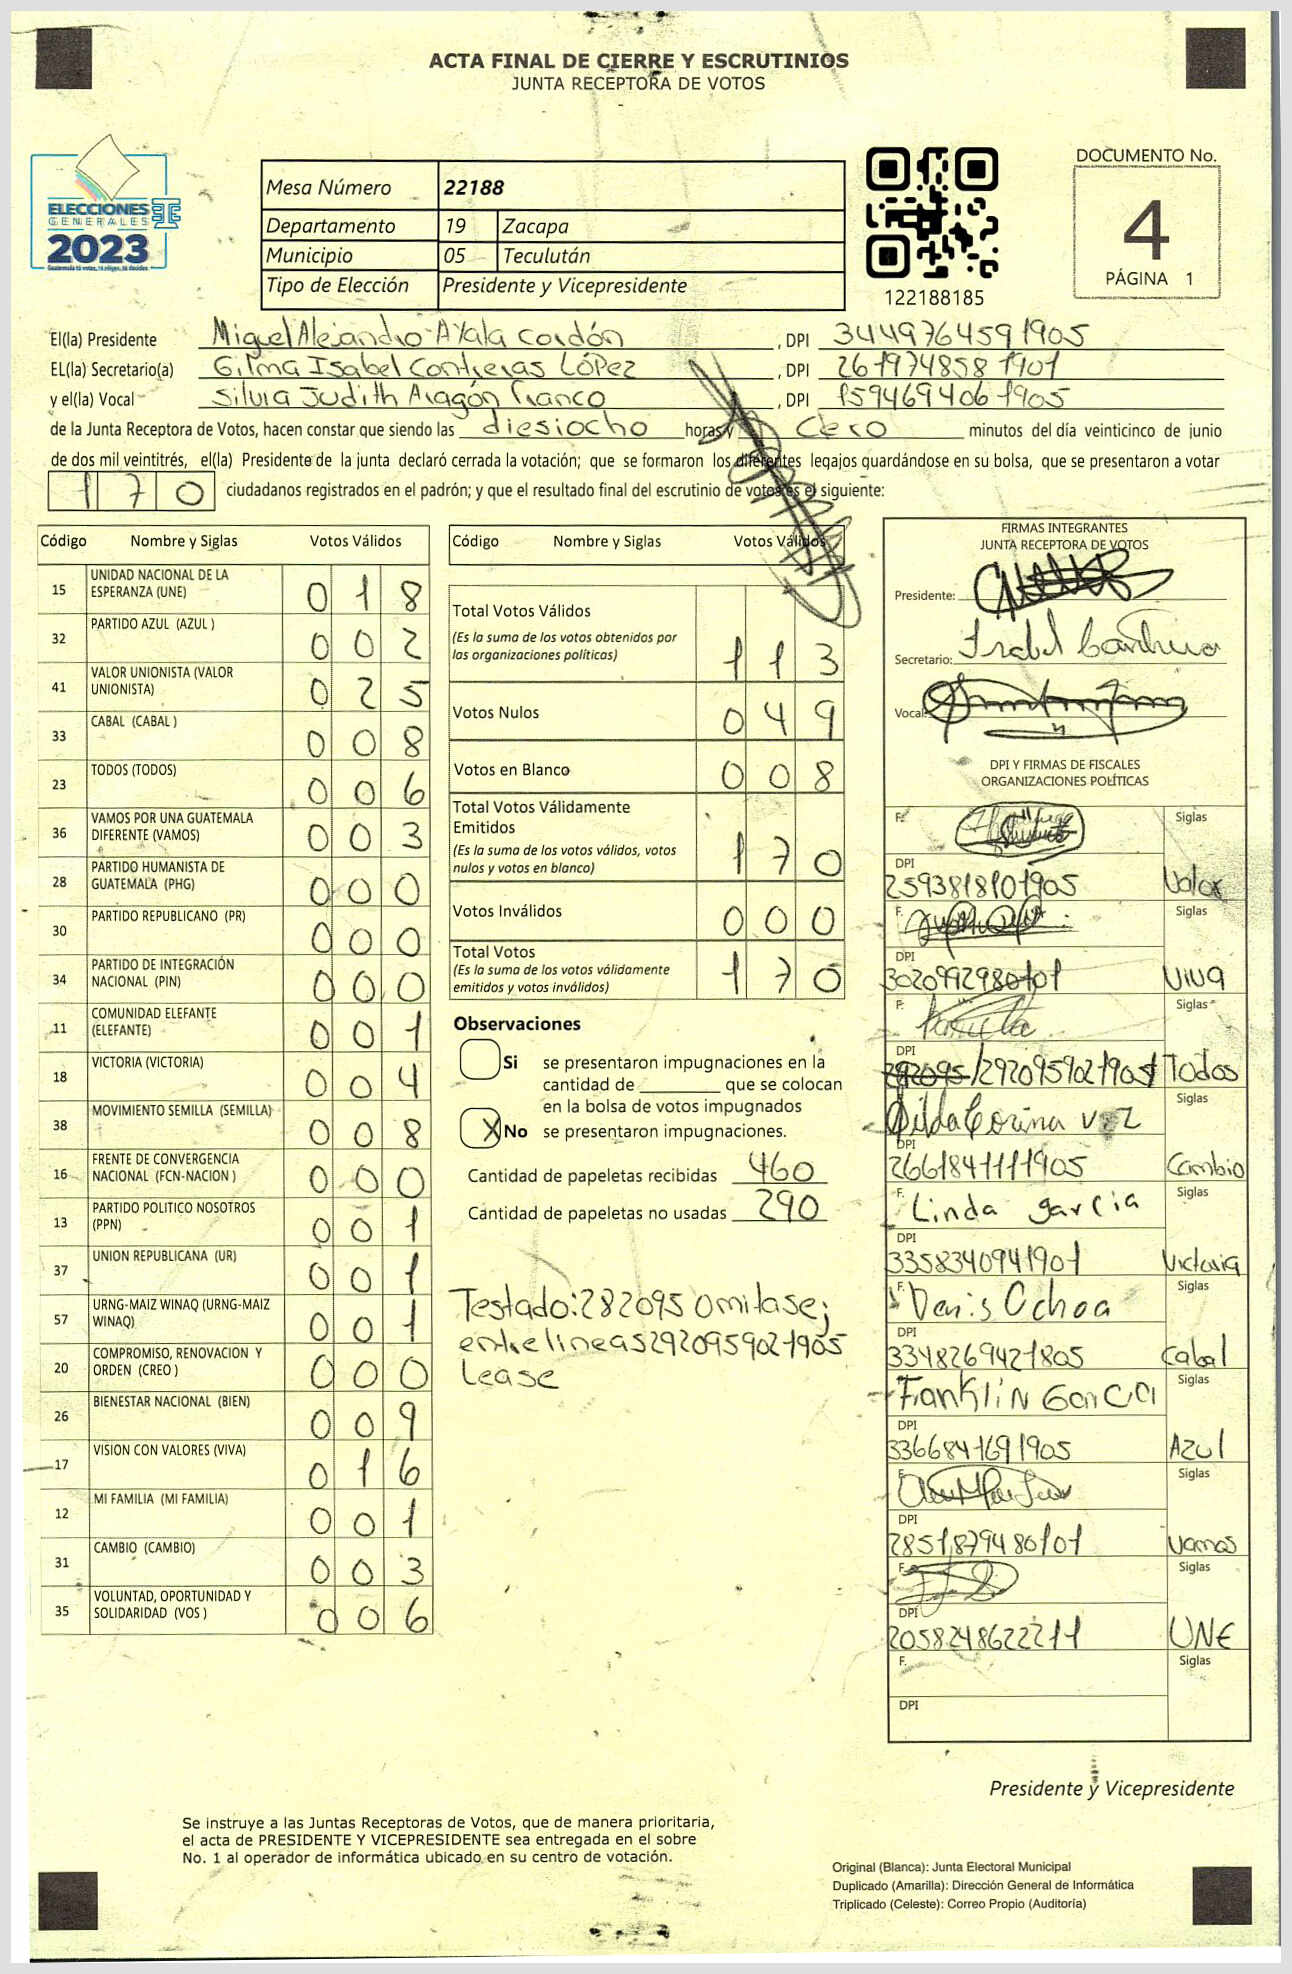 ACTA FINAL DE CIERRE Y ESCRUTINIOS
JUNTA RECEPTORA DE VOTOS
ELECCIONES
GENERALES
2023
Mesa Número 22188
Departamento 19 Zacapa
Municipio 05 Teculután
Tipo de Elección Presidente y Vicepresidente
122188185
DOCUMENTO No.
4
PÁGINA 1
El(la) Presidente Miguel Alejandro Ayala Cordón , DPI 3449764591905
EL(la) Secretario(a) Gilma Isabel Contreras López , DPI 2619748581901
y el(la) Vocal Silvia Judith Aragón Franco , DPI 1594694061905
de la Junta Receptora de Votos, hacen constar que siendo las diesiocho horas y cero minutos del día veinticinco de junio
de dos mil veintitrés, el(la) Presidente de la junta declaró cerrada la votación; que se formaron los diferentes legajos guardándose en su bolsa, que se presentaron a votar
170 ciudadanos registrados en el padrón; y que el resultado final del escrutinio de votos es el siguiente:
Código Nombre y Siglas Votos Válidos
15 UNIDAD NACIONAL DE LA ESPERANZA (UNE) 018
32 PARTIDO AZUL (AZUL ) 002
41 VALOR UNIONISTA (VALOR UNIONISTA) 025
33 CABAL (CABAL ) 008
23 TODOS (TODOS) 006
36 VAMOS POR UNA GUATEMALA DIFERENTE (VAMOS) 003
28 PARTIDO HUMANISTA DE GUATEMALA (PHG) 000
30 PARTIDO REPUBLICANO (PR) 000
34 PARTIDO DE INTEGRACIÓN NACIONAL (PIN) 000
11 COMUNIDAD ELEFANTE (ELEFANTE) 001
18 VICTORIA (VICTORIA) 004
38 MOVIMIENTO SEMILLA (SEMILLA) 008
16 FRENTE DE CONVERGENCIA NACIONAL (FCN-NACION ) 000
13 PARTIDO POLITICO NOSOTROS (PPN) 001
37 UNION REPUBLICANA (UR) 001
57 URNG-MAIZ WINAQ (URNG-MAIZ WINAQ) 001
20 COMPROMISO, RENOVACION Y ORDEN (CREO ) 000
26 BIENESTAR NACIONAL (BIEN) 009
17 VISION CON VALORES (VIVA) 016
12 MI FAMILIA (MI FAMILIA) 001
31 CAMBIO (CAMBIO) 003
35 VOLUNTAD, OPORTUNIDAD Y SOLIDARIDAD (VOS ) 006
Código Nombre y Siglas Votos Válidos
Total Votos Válidos 113
(Es la suma de los votos obtenidos por
las organizaciones políticas)
Votos Nulos 049
Votos en Blanco 008
Total Votos Válidamente
Emitidos 170
(Es la suma de los votos válidos, votos
nulos y votos en blanco)
Votos Inválidos 000
Total Votos 170
(Es la suma de los votos válidamente
emitidos y votos inválidos)
Observaciones
Si se presentaron impugnaciones en la
cantidad de ________ que se colocan
en la bolsa de votos impugnados
X No se presentaron impugnaciones.
Cantidad de papeletas recibidas 460
Cantidad de papeletas no usadas 290
Testado: 282095 Omitase;
entrelineas 2920959021905
Lease
FIRMAS INTEGRANTES
JUNTA RECEPTORA DE VOTOS
Presidente:
Secretario: Isabel
Vocal:
DPI Y FIRMAS DE FISCALES
ORGANIZACIONES POLÍTICAS
F. Siglas
DPI
2593818101905 Valor
F. Siglas
DPI
3020992980101 Viva
F. Siglas
DPI
292095/2920959021905 Todos
Gilda Corina Siglas
DPI
2661841111905 Cambio
F. Linda García Siglas
DPI
3358340941901 Victoria
F. Denis Ochoa Siglas
DPI
3348269421805 Cabal
Franklin García Siglas
DPI
3366841691905 Azul
F. Siglas
DPI
2851879480101 Vamos
F. Siglas
DPI
2058248622211 UNE
F. Siglas
DPI
Presidente y Vicepresidente
Se instruye a las Juntas Receptoras de Votos, que de manera prioritaria,
el acta de PRESIDENTE Y VICEPRESIDENTE sea entregada en el sobre
No. 1 al operador de informática ubicado en su centro de votación.
Original (Blanca): Junta Electoral Municipal
Duplicado (Amarilla): Dirección General de Informática
Triplicado (Celeste): Correo Propio (Auditoría)